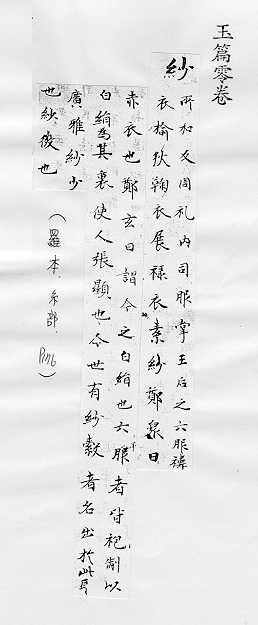 玉篇零卷
紗
所加反周礼內司服掌王后之六服褘
衣揄狄鞠衣展褖衣素紗鄭衆曰
赤衣也鄭玄曰謂今之白絹也六服者皆袍制以
白絹為其裏使人張顯也今世有紗縠者名出於此
廣雅紗少
也紗微也
(羅本.糸部.)